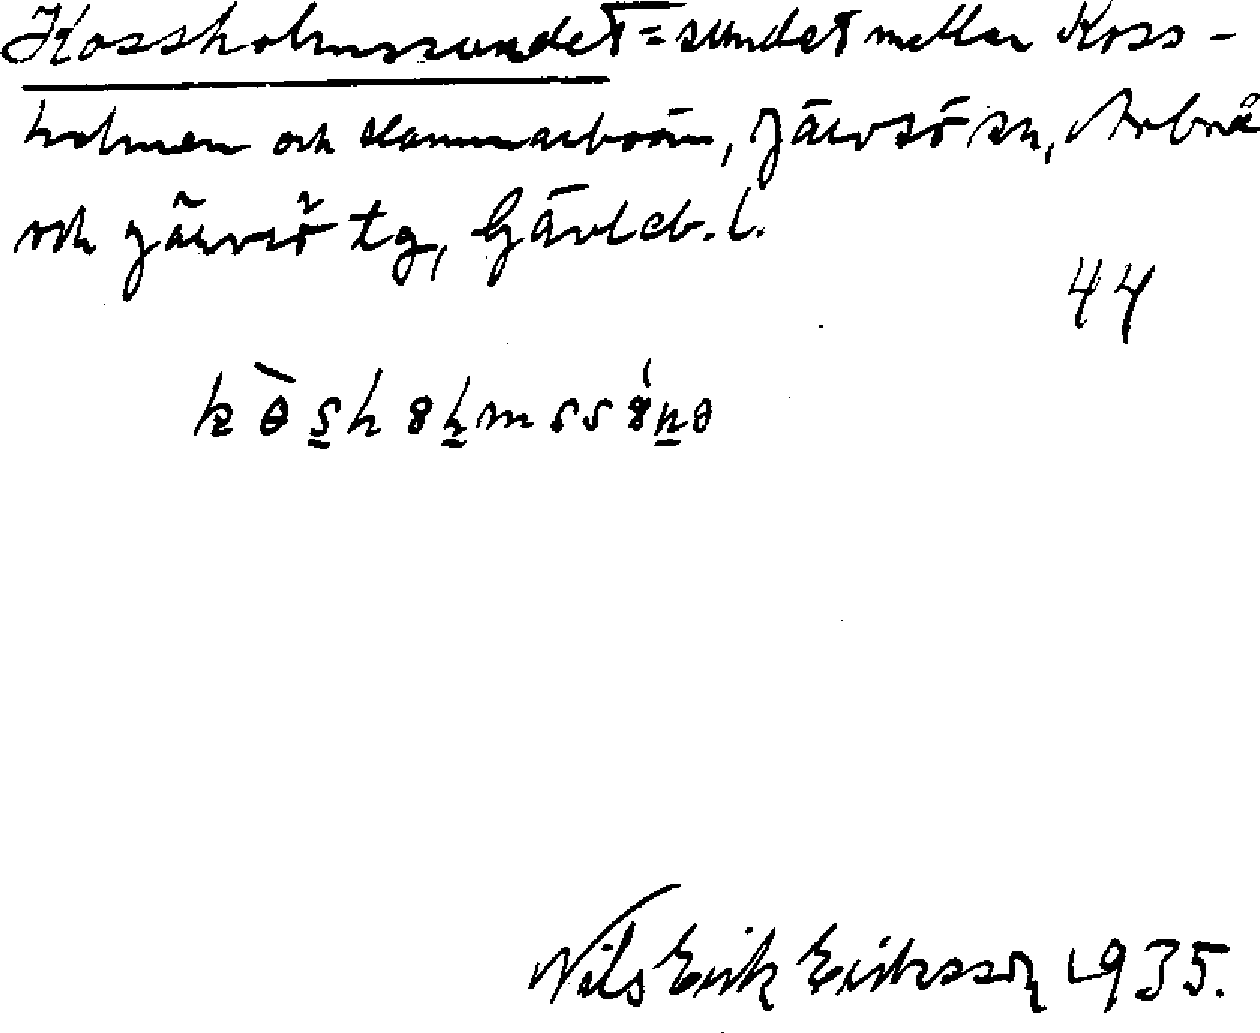 Kossholmssundet = sundet mellan Koss-
holmen och Kammarboön, Järvsö sn, Arbrå
och Järvsö tg, Gävleb. l.
44
Nils Erik Eriksson 1935.